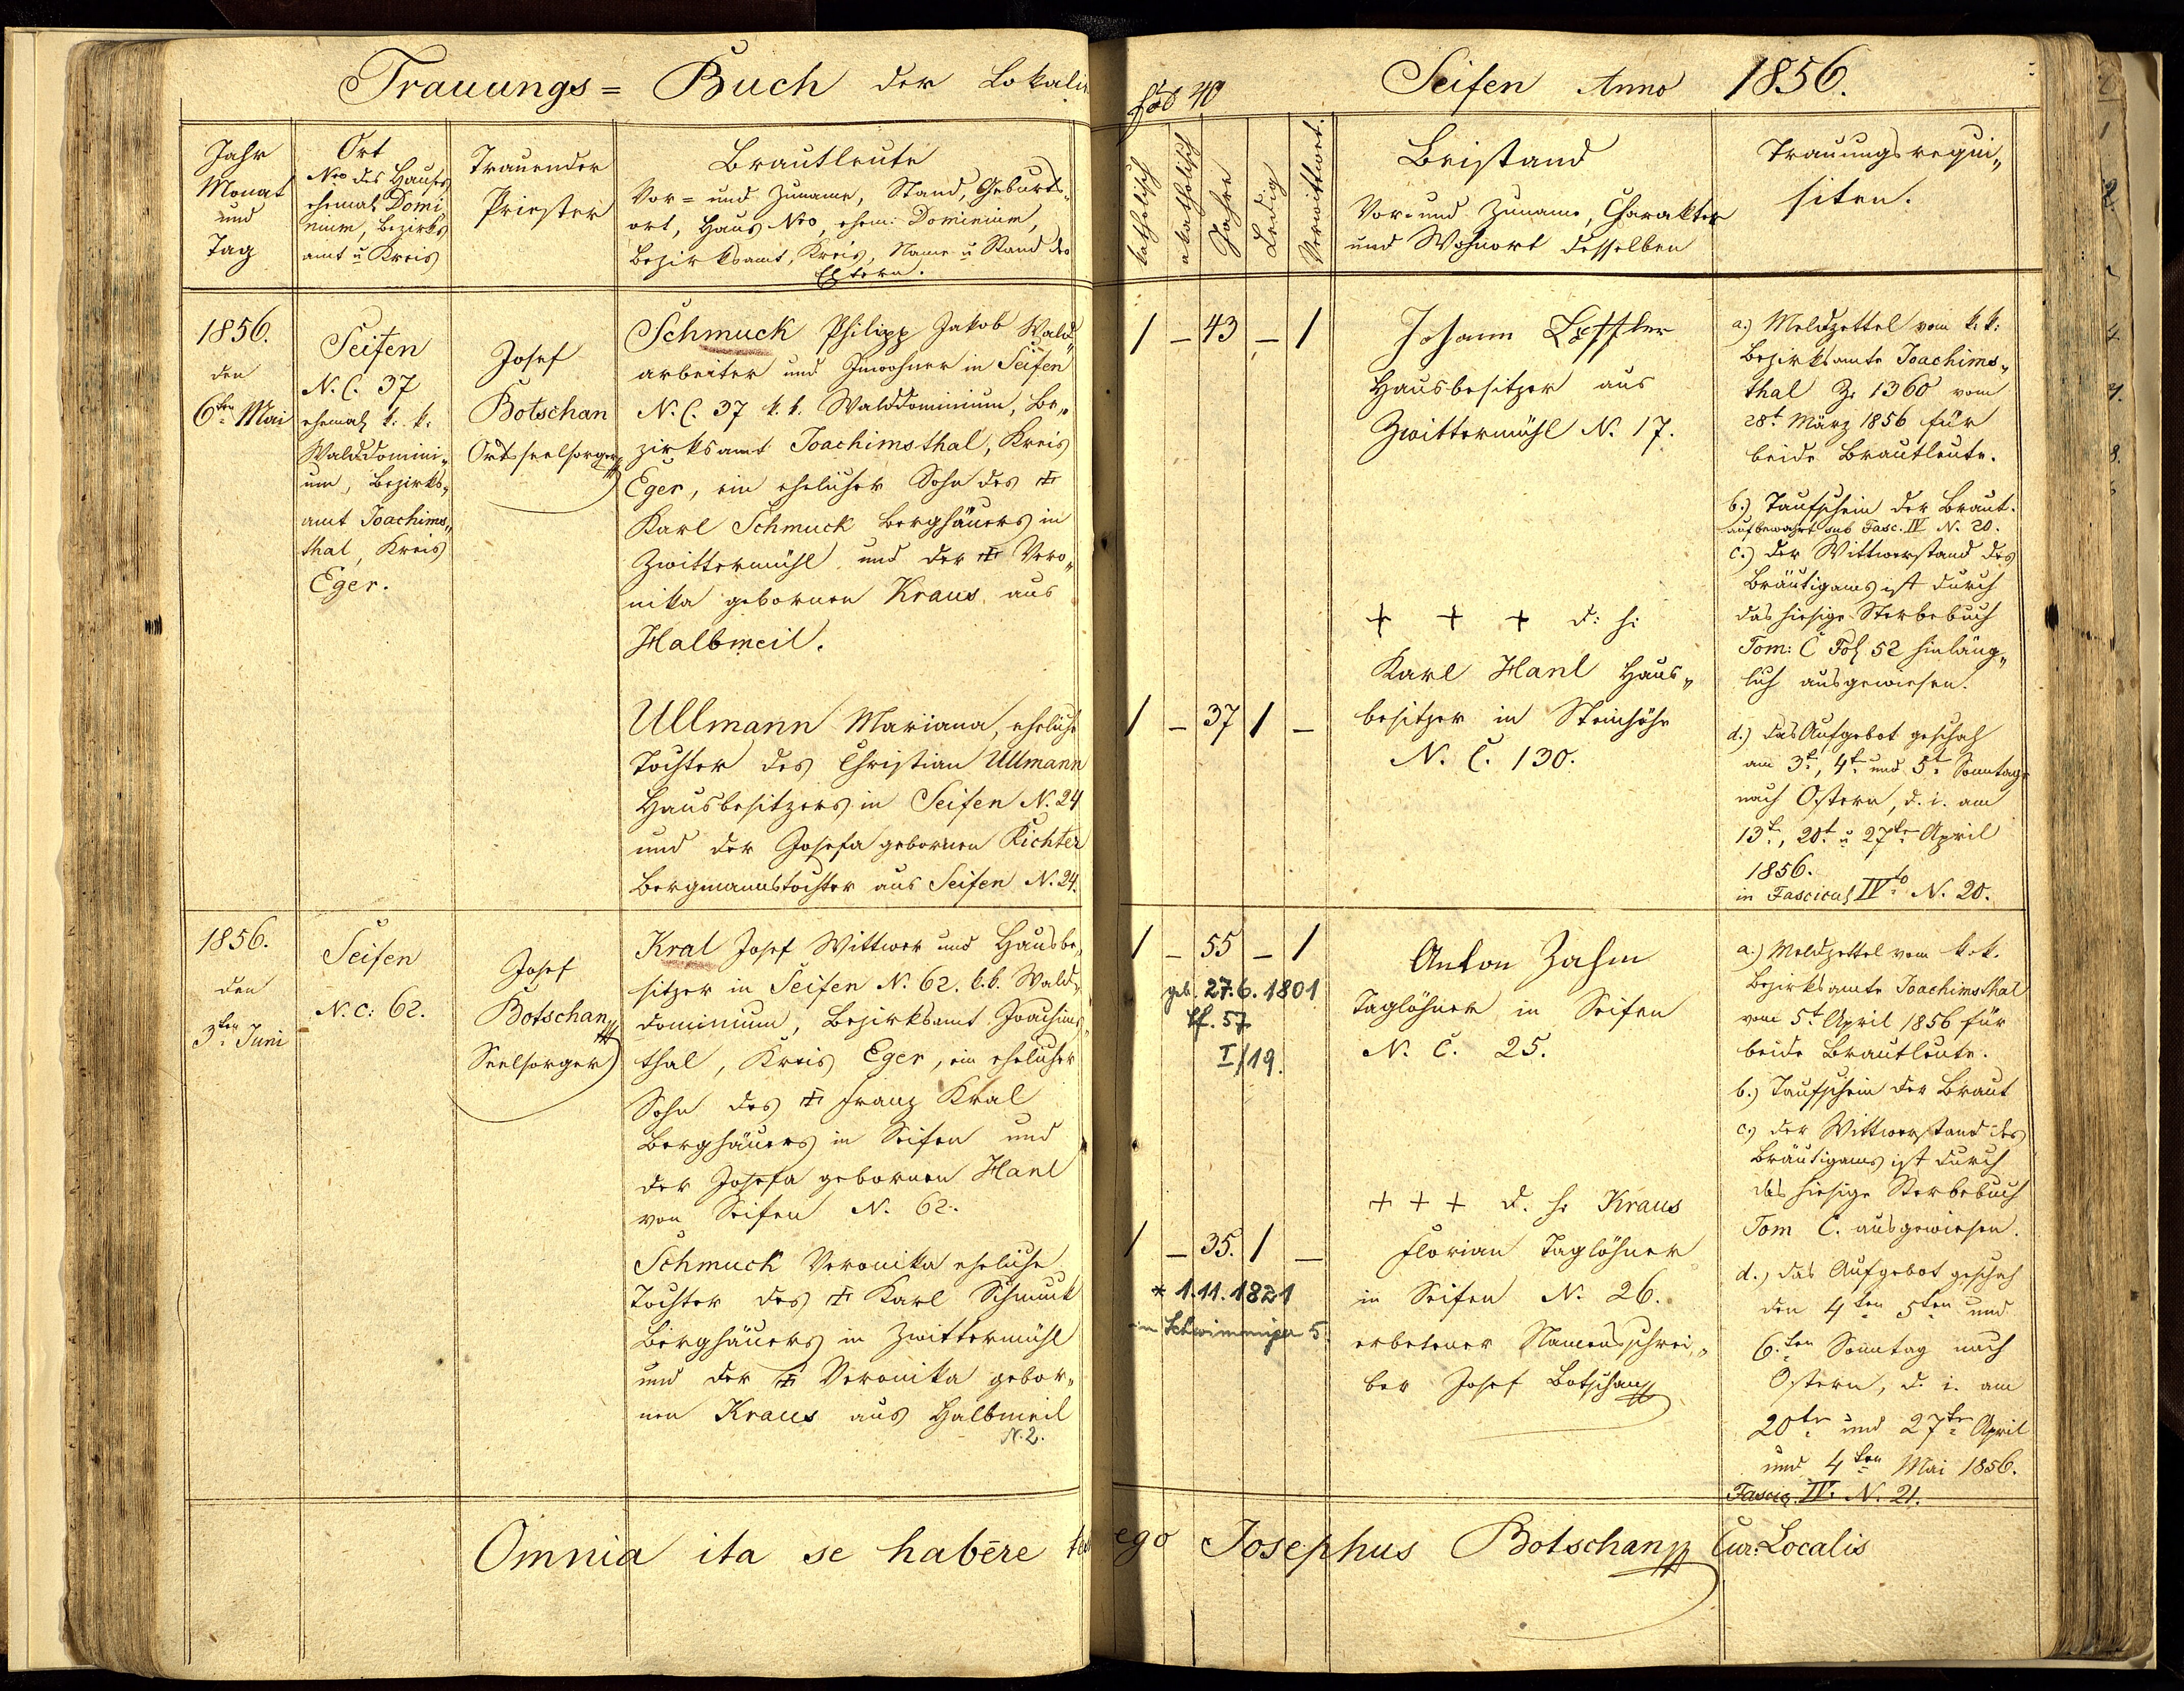 Trauungs = Buch der Lokalie
Jahr
Monat
und
Tag
Ort
Nro des Hauses
ehemals Domi
nium, Bezirks
amt u Kreis
Trauender
Priester
Brautleute
Vor= und Zuname, Stand, Geburts-
ort, Haus Nro, ehem: Dominium,
Bezirksamt, Kreis, Name u Stand der
Eltern.
1856.
den
6ten Mai
Seifen
N. C. 37
ehemals k. k.
Walddomini„
um, Bezirks„
amt Joachims„
thal, Kreis
Eger.
Josef
Botschan
Ortsseelsorger
Schmuck Philipp Jakob Wald„
arbeiter und Inwohner in Seifen
N. C. 37 k. k. Walddominium, Be„
zirksamt Joachimsthal, Kreis
Eger, ein ehelicher Sohn des ‡
Karl Schmuck Berghäuers in
Zwittermühl und der ‡ Vero„
nika gebornen Kraus aus
Halbmeil.
Ullmann Mariana, eheliche
Tochter des Christian Ullmann
Hausbesitzers in Seifen N. 24
und der Josefa gebornen Richter
Bergmannstochter aus Seifen N. 24.
1856.
den
3ten Juni
Seifen
N. C: 62.
Josef
Botschan
Seelsorger
Kral Josef Wittwer und Hausbe„
sitzer in Seifen N. 62. k. k. Wald„
dominium, Bezirksamt Joachims„
thal, Kreis Eger, ein ehelicher
Sohn des ‡ Franz Kral
Berghäuers in Seifen und
der Josefa gebornen Hanl
von Seifen N. 62.
Schmuck Veronika eheliche
Tochter des ‡ Karl Schmuck
Berghäuers in Zwittermühl
und der ‡ Veronika gebor„
nen Kraus aus Halbmeil
N. 2.
Omnia ita se habere
Fol 40
Seifen Anno 1856.
katholisch
akatholisch
Jahre
Ledig
Verwittwet.
Beistand
Vor- und Zuname, Charakter
und Wohnort desselben
Trauungsrequi„
siten.
1 – 43 – 1
Johann Löffler
Hausbesitzer aus
Zwittermühl N. 17.
+ + + d: h:
1 – 37 1 –
Karl Hanl Haus„
besitzer in Steinhöhe
N. C. 130.
a.) Meldzettel vom k: k:
Bezirksamte Joachims„
thal Z. 1360 vom
28t März 1856 für
beide Brautleute.
b.) Taufschein der Braut.
aufbewahrt sub Fasc. IV N. 20.
c.) der Wittwerstand des
Bräutigams ist durch
das hiesige Sterbebuch
Tom: C Fol 52 hinläng„
lich ausgewiesen.
d.) das Aufgebot geschah
am 3t, 4t und 5t Sonntage
nach Ostern, d. i. am
13t, 20t u 27ten April
1856.
in Fascicul IVto N. 20.
1 – 55 – 1
geb. 27.6.1801
Sf. 57
I/19.
Anton Zahm
Taglöhner in Seifen
N. C. 25.
1 – 35. 1 –
* 1.11.1821
in Schwimmiger 5.
+ + + d. h. Kraus
Florian Taglöhner
in Seifen N. 26.
erbetener Namensschrei„
ber Josef Botschan
a.) Meldzettel vom k. k.
Bezirksamte Joachimsthal
vom 5t April 1856 für
beide Brautleute.
b.) Taufschein der Braut
c.) der Wittwerstand des
Bräutigams ist durch
das hiesige Sterbebuch
Tom C. ausgewiesen.
d.) das Aufgebot geschah
den 4ten 5ten und
6.ten Sonntag nach
Ostern, d. i. am
20ten und 27ten April
und 4ten Mai 1856.
Fascic. IV. N. 21.
ego Josephus Botschan Cur: Localis